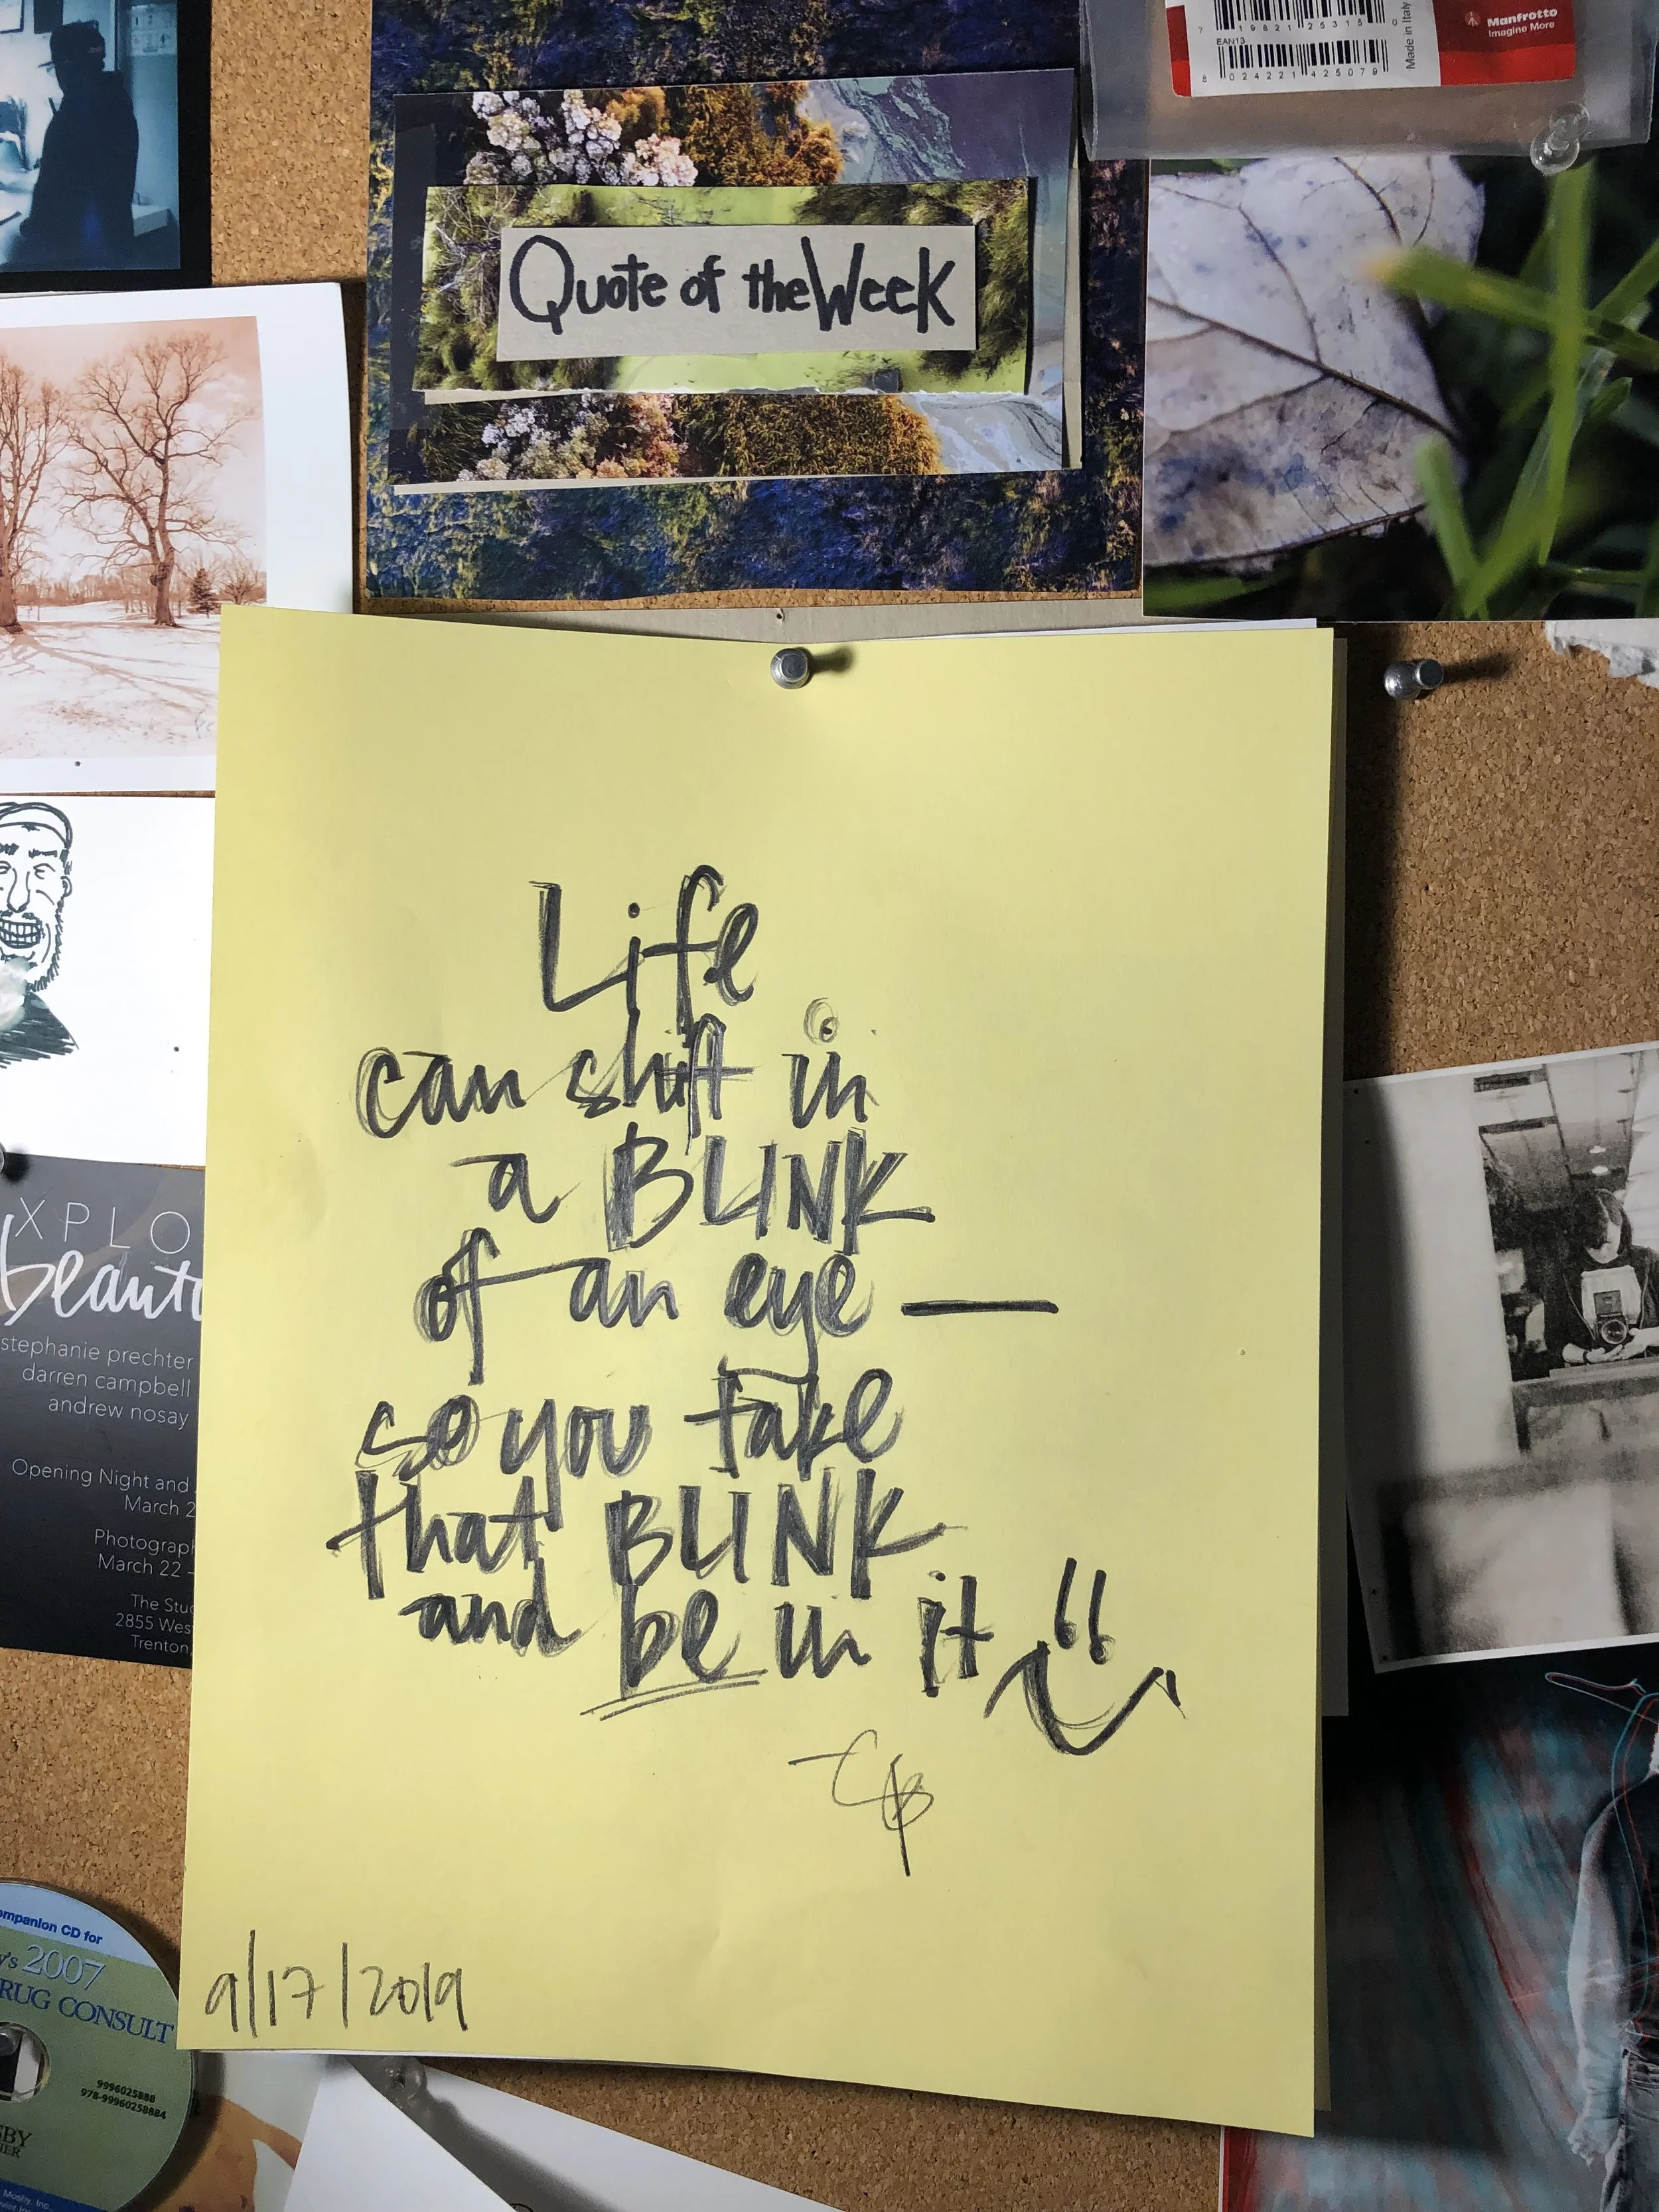 7 19821 25315 0
EAN13
8 024221 425079
Made in Italy
Manfrotto
Imagine More
Quote of the Week
Life
can shift in
a BLINK
of an eye —
so you take
that BLINK
and be in it
9/17/2019
XPLO
beauty
stephanie prechter
darren campbell
andrew nosay
Opening Night and
March 2
Photograph
March 22 -
The Stud
2855 Wes
Trenton,
ompanion CD for
y's 2007
RUG CONSULT
9996025888
978-99960258884
SBY
IER
Mosby, Inc.